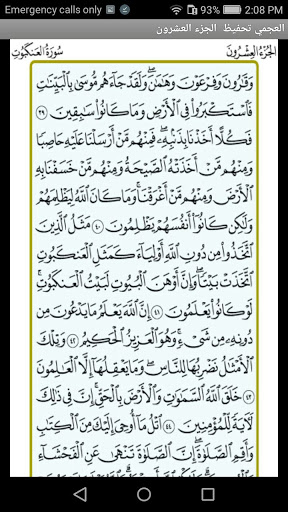 Emergency calls only 2:08 PM
العجمي تحفيظ الجزء العشرون
الجُزْءُ العِشْرُونَ سُورَةُ العَنكَبُوتِ
وَقَٰرُونَ وَفِرْعَوْنَ وَهَٰمَٰنَ ۖ وَلَقَدْ جَآءَهُم مُّوسَىٰ بِٱلْبَيِّنَٰتِ
فَٱسْتَكْبَرُوا۟ فِى ٱلْأَرْضِ وَمَا كَانُوا۟ سَٰبِقِينَ ٣٩
فَكُلًّا أَخَذْنَا بِذَنۢبِهِۦ ۖ فَمِنْهُم مَّنْ أَرْسَلْنَا عَلَيْهِ حَاصِبًا
وَمِنْهُم مَّنْ أَخَذَتْهُ ٱلصَّيْحَةُ وَمِنْهُم مَّنْ خَسَفْنَا بِهِ
ٱلْأَرْضَ وَمِنْهُم مَّنْ أَغْرَقْنَا ۚ وَمَا كَانَ ٱللَّهُ لِيَظْلِمَهُمْ
وَلَٰكِن كَانُوٓا۟ أَنفُسَهُمْ يَظْلِمُونَ ٤٠ مَثَلُ ٱلَّذِينَ
ٱتَّخَذُوا۟ مِن دُونِ ٱللَّهِ أَوْلِيَآءَ كَمَثَلِ ٱلْعَنكَبُوتِ
ٱتَّخَذَتْ بَيْتًا ۖ وَإِنَّ أَوْهَنَ ٱلْبُيُوتِ لَبَيْتُ ٱلْعَنكَبُوتِ ۖ
لَوْ كَانُوا۟ يَعْلَمُونَ ٤١ إِنَّ ٱللَّهَ يَعْلَمُ مَا يَدْعُونَ
مِن دُونِهِۦ مِن شَىْءٍ ۚ وَهُوَ ٱلْعَزِيزُ ٱلْحَكِيمُ ٤٢ وَتِلْكَ
ٱلْأَمْثَٰلُ نَضْرِبُهَا لِلنَّاسِ ۖ وَمَا يَعْقِلُهَآ إِلَّا ٱلْعَٰلِمُونَ
٤٣ خَلَقَ ٱللَّهُ ٱلسَّمَٰوَٰتِ وَٱلْأَرْضَ بِٱلْحَقِّ ۚ إِنَّ فِى ذَٰلِكَ
لَءَايَةً لِّلْمُؤْمِنِينَ ٤٤ ٱتْلُ مَآ أُوحِىَ إِلَيْكَ مِنَ ٱلْكِتَٰبِ
وَأَقِمِ ٱلصَّلَوٰةَ ۖ إِنَّ ٱلصَّلَوٰةَ تَنْهَىٰ عَنِ ٱلْفَحْشَآءِ